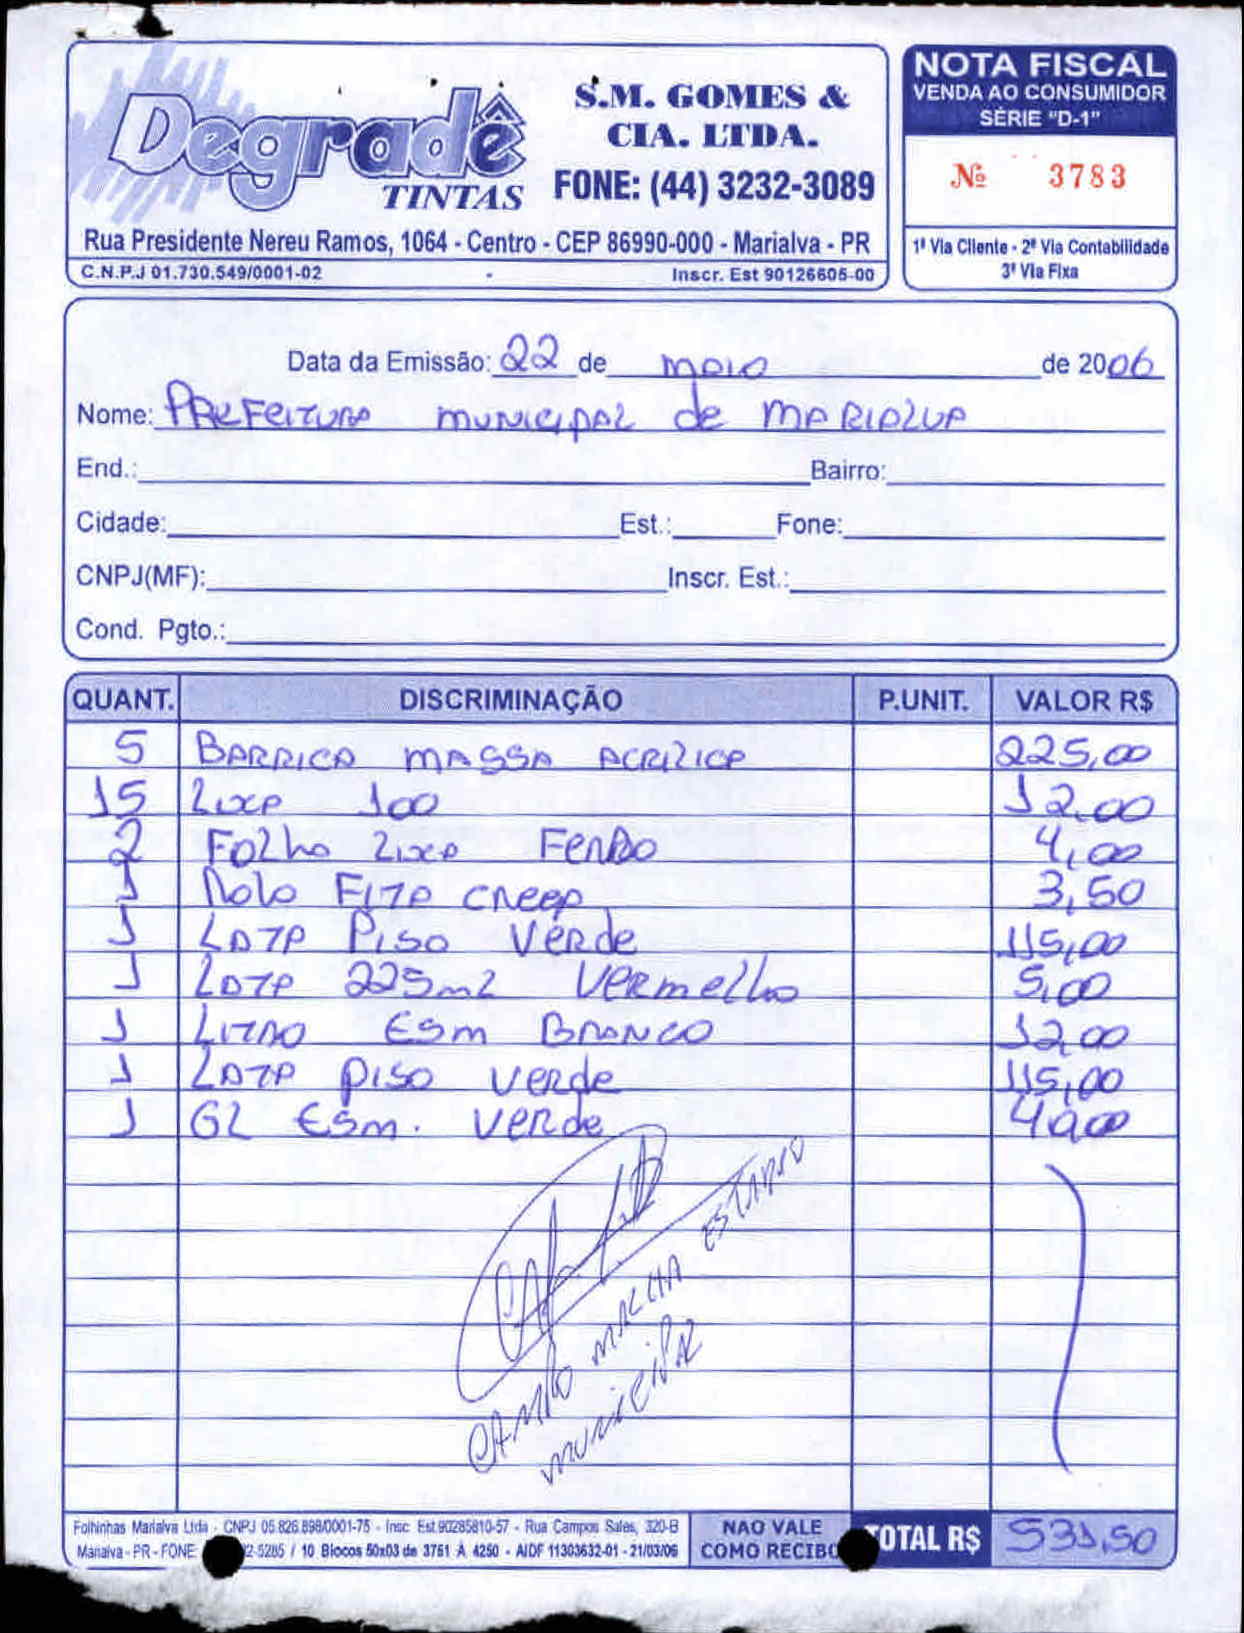 Degradê
TINTAS
S.M. GOMES &
CIA. LTDA.
FONE: (44) 3232-3089
Rua Presidente Nereu Ramos, 1064 - Centro - CEP 86990-000 - Marialva - PR
C.N.P.J 01.730.549/0001-02 Inscr. Est 90126605-00
NOTA FISCAL
VENDA AO CONSUMIDOR
SÉRIE "D-1"
Nº 3783
1ª Via Cliente - 2ª Via Contabilidade
3ª Via Fixa
Data da Emissão: 22 de maio de 2006
Nome: PREFEITURA MUNICIPAL de MARIALVA
End.: Bairro:
Cidade: Est.: Fone:
CNPJ(MF): Inscr. Est.:
Cond. Pgto.:
QUANT. DISCRIMINAÇÃO P.UNIT. VALOR R$
5 BARRICA MASSA ACRILICA 225,00
15 Lixa 100 12,00
2 Folha Lixa Ferro 4,00
1 Rolo FITA CREEP 3,50
1 LATA PISO VERde 115,00
1 LATA 225ml VERmelho 5,00
1 LITRO ESM BRANCO 12,00
1 LATA PISO VERde 115,00
1 GL ESM. VERde 40,00
CAMPO MALHA ESTADIO
MUNICIPAL
Folhinhas Marialva Ltda - CNPJ 05.826.898/0001-75 - Insc Est.90285810-57 - Rua Campos Sales, 320-B
Marialva - PR - FONE: 2-5285 / 10 Blocos 50x03 de 3751 À 4250 - AIDF 11303632-01 - 21/03/06
NAO VALE
COMO RECIBO
TOTAL R$ 531,50